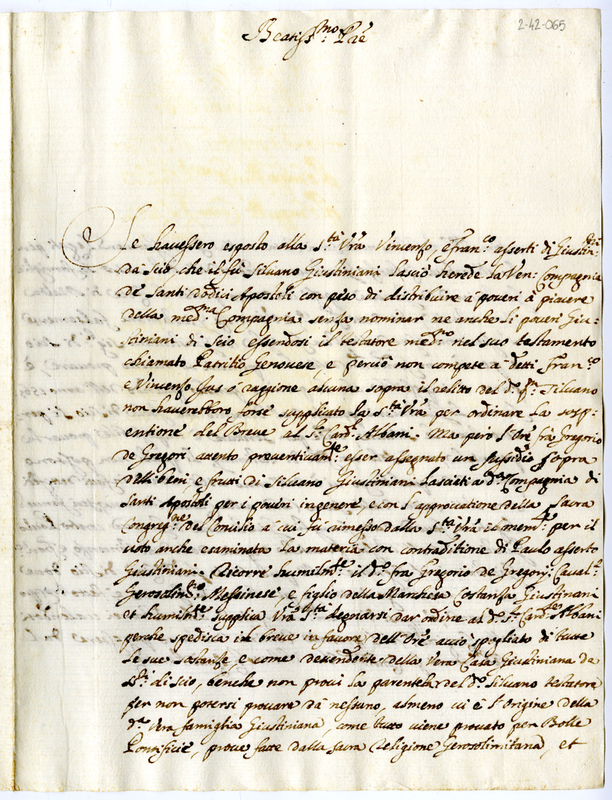 2-42-065
Beatiss:mo Pre
Se havessero esposto alla S.tà Vra Vincenzo, e Fran:co asserti di Giustin:ni
da Scio, che il fù Silvano Giustiniani lasciò herede la Ven: Compagnia
de Santi dodici Apostoli con peso di distribuire à poveri à piacere
della med:ma Compagnia senza nominar ne anche li poveri Giu-
stiniani di Scio essendosi il testatore med:mo nel suo testamento
chiamato Patritio Genovese, e perciò non compete à detti Fran:co
e Vincenzo Jus ò raggione alcuna sopra il relitto del d:o Silvano
non haverebbero forse supplicato la S.tà Vra per ordinare la sus-
pentione del Breve al S:r Card: Albani. Ma però l'Ore frà Gregorio
de Gregori attento preventivam:te esser assegnato un sussidio sopra
delli beni e frutti di Silvano Giustiniani lasciati à d:a Compagnia di
Santi Apostoli per i poveri in genere, e con l'approvatione della Sacra
Congreg:ne del Concilio à cui fù rimesso dalla S.tà Vra per il
voto anche esaminata la materia con contraditione di Paulo asserto
Giustiniani. Ricorre humilm:te il d:o frà Gregorio de Gregorj Caval:re
Gerosolim:no Messinese, e figlio della Marchesa Costanza Giustiniani
et humilm:te supplica Vra S.tà degnarsi dar ordine al d:o S:r Card:le Albani
perche spedisca in breve in favore dell'Ore acciò spogliato di tutte
le sue sostanze e come descendente della Vera Casa Giustiniana de
SS:ri di Scio, benche non provi la parentela del d:o Silvano testatore
per non potersi provare dà nessuno, almeno vi è l'origine della
d:a Vera famiglia Giustiniana, come tutto viene provato per Bolle
Pontificie, prove fatte dalla Sacra Religione Gerosolimitana, et